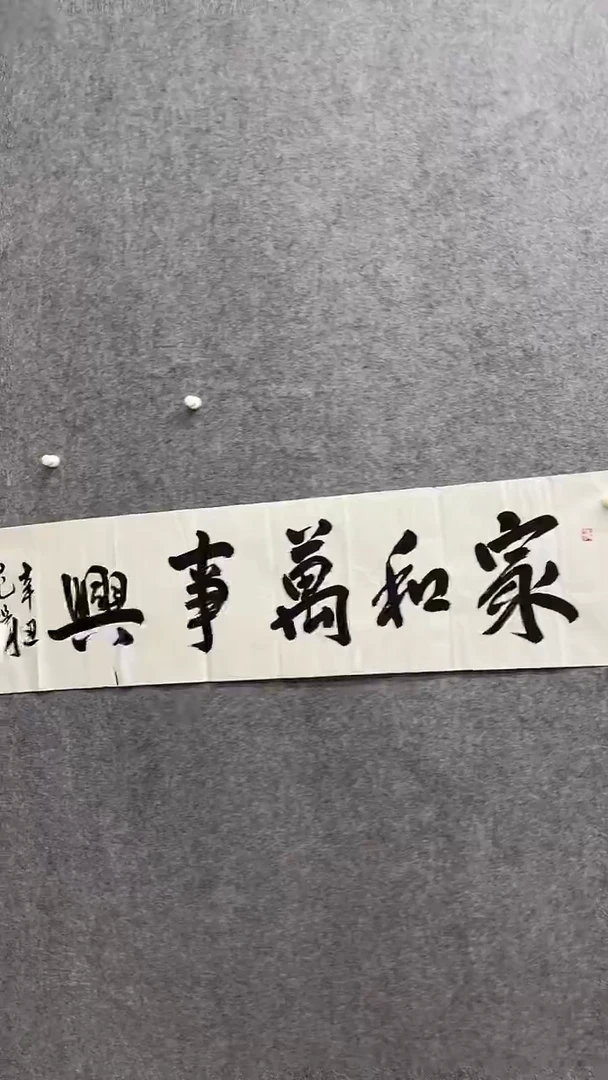 家和萬事興
辛丑